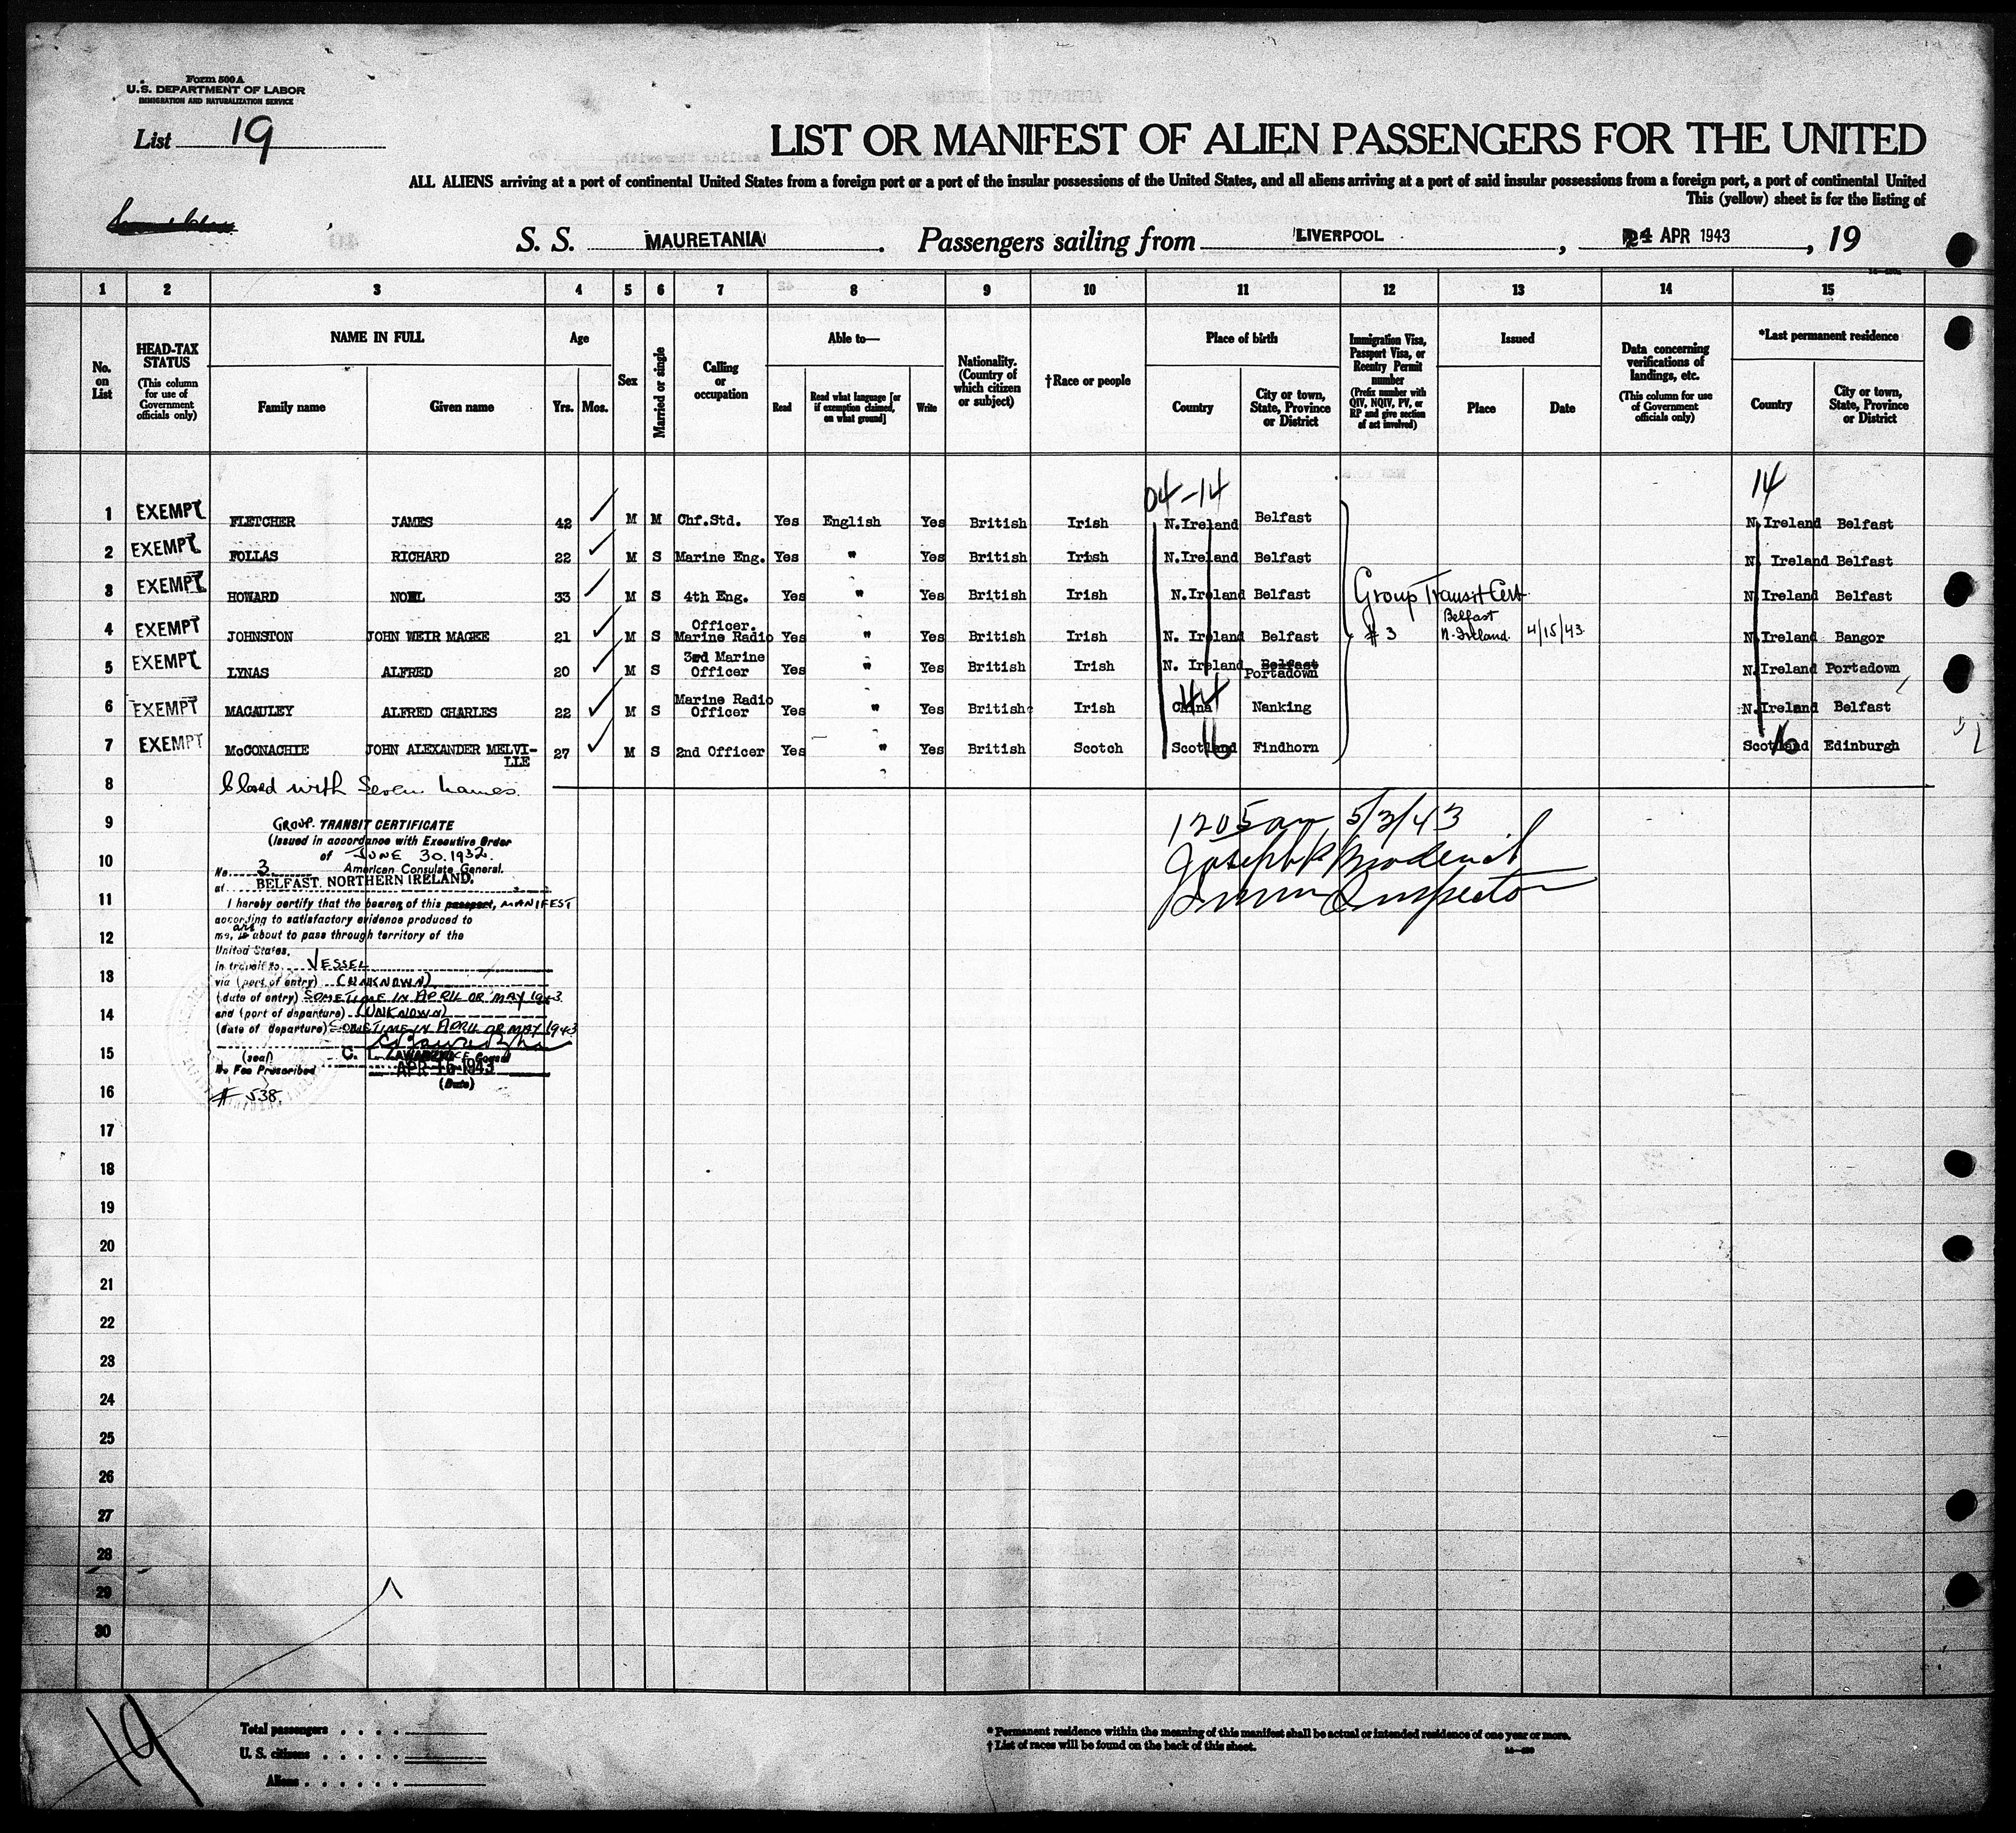 Form 500A
U.S. DEPARTMENT OF LABOR
IMMIGRATION AND NATURALIZATION SERVICE
List 19
LIST OR MANIFEST OF ALIEN PASSENGERS FOR THE UNITED
ALL ALIENS arriving at a port of continental United States from a foreign port or a port of the insular possessions of the United States, and all aliens arriving at a port of said insular possessions from a foreign port, a port of continental United
This (yellow) sheet is for the listing of
S. S. MAURETANIA. Passengers sailing from LIVERPOOL, 24 APR 1943, 19
1 2 3 4 5 6 7 8 9 10 11 12 13 14 15
No. on List
HEAD-TAX STATUS (This column for use of Government officials only)
NAME IN FULL
Family name
Given name
Age
Yrs. Mos.
Sex
Married or single
Calling or occupation
Able to—
Read
Read what language [or if exemption claimed, on what ground]
Write
Nationality. (Country of which citizen or subject)
†Race or people
Place of birth
Country
City or town, State, Province or District
Immigration Visa, Passport Visa, or Reentry Permit number (Prefix number with QIV, NQIV, PV, or RP and give section of act involved)
Issued
Place
Date
Data concerning verifications of landings, etc. (This column for use of Government officials only)
*Last permanent residence
Country
City or town, State, Province or District
04-14
14
1 EXEMPT FLETCHER JAMES 42 M M Chf.Std. Yes English Yes British Irish N.Ireland Belfast N.Ireland Belfast
2 EXEMPT FOLLAS RICHARD 22 M S Marine Eng. Yes " Yes British Irish N.Ireland Belfast N. Ireland Belfast
3 EXEMPT HOWARD NOEL 33 M S 4th Eng. Yes " Yes British Irish N.Ireland Belfast Group Transit Cert N.Ireland Belfast
4 EXEMPT JOHNSTON JOHN WEIR MAGEE 21 M S Officer. Marine Radio Yes " Yes British Irish N. Ireland Belfast # 3 Belfast N-Ireland. 4/15/43 N.Ireland Bangor
5 EXEMPT LYNAS ALFRED 20 M S 3rd Marine Officer Yes " Yes British Irish N. Ireland Belfast Portadown N.Ireland Portadown
44
6 EXEMPT MACAULEY ALFRED CHARLES 22 M S Marine Radio Officer Yes " Yes British Irish China Nanking N.Ireland Belfast
7 EXEMPT McCONACHIE JOHN ALEXANDER MELVI-LLE 27 M S 2nd Officer Yes " Yes British Scotch Scotland 16 Findhorn Scotland 16 Edinburgh
8 Closed with Seven names.
9
10
11
12
13
14
15
16
17
18
19
20
21
22
23
24
25
26
27
28
29
30
GROUP TRANSIT CERTIFICATE
(Issued in accordance with Executive Order
of JUNE 30.1932.
No. 3 American Consulate General.
at BELFAST. NORTHERN IRELAND.
I hereby certify that the bearer of this passport, MANIFEST
according to satisfactory evidence produced to
me, is are about to pass through territory of the
United States,
in transit to VESSEL
via (port of entry) (UNKNOWN)
(date of entry) SOMETIME IN APRIL OR MAY 1943
and (port of departure) (UNKNOWN)
(date of departure) SOMETIME IN APRIL OR MAY 1943
(seal)
No Fee Prescribed
APR 15 1943
(Date)
# 538.
1205 am, 5/3/43
Joseph
Inspector
19
Total passengers
U. S. citizens
Aliens
* Permanent residence within the meaning of this manifest shall be actual or intended residence of one year or more.
† List of races will be found on the back of this sheet.